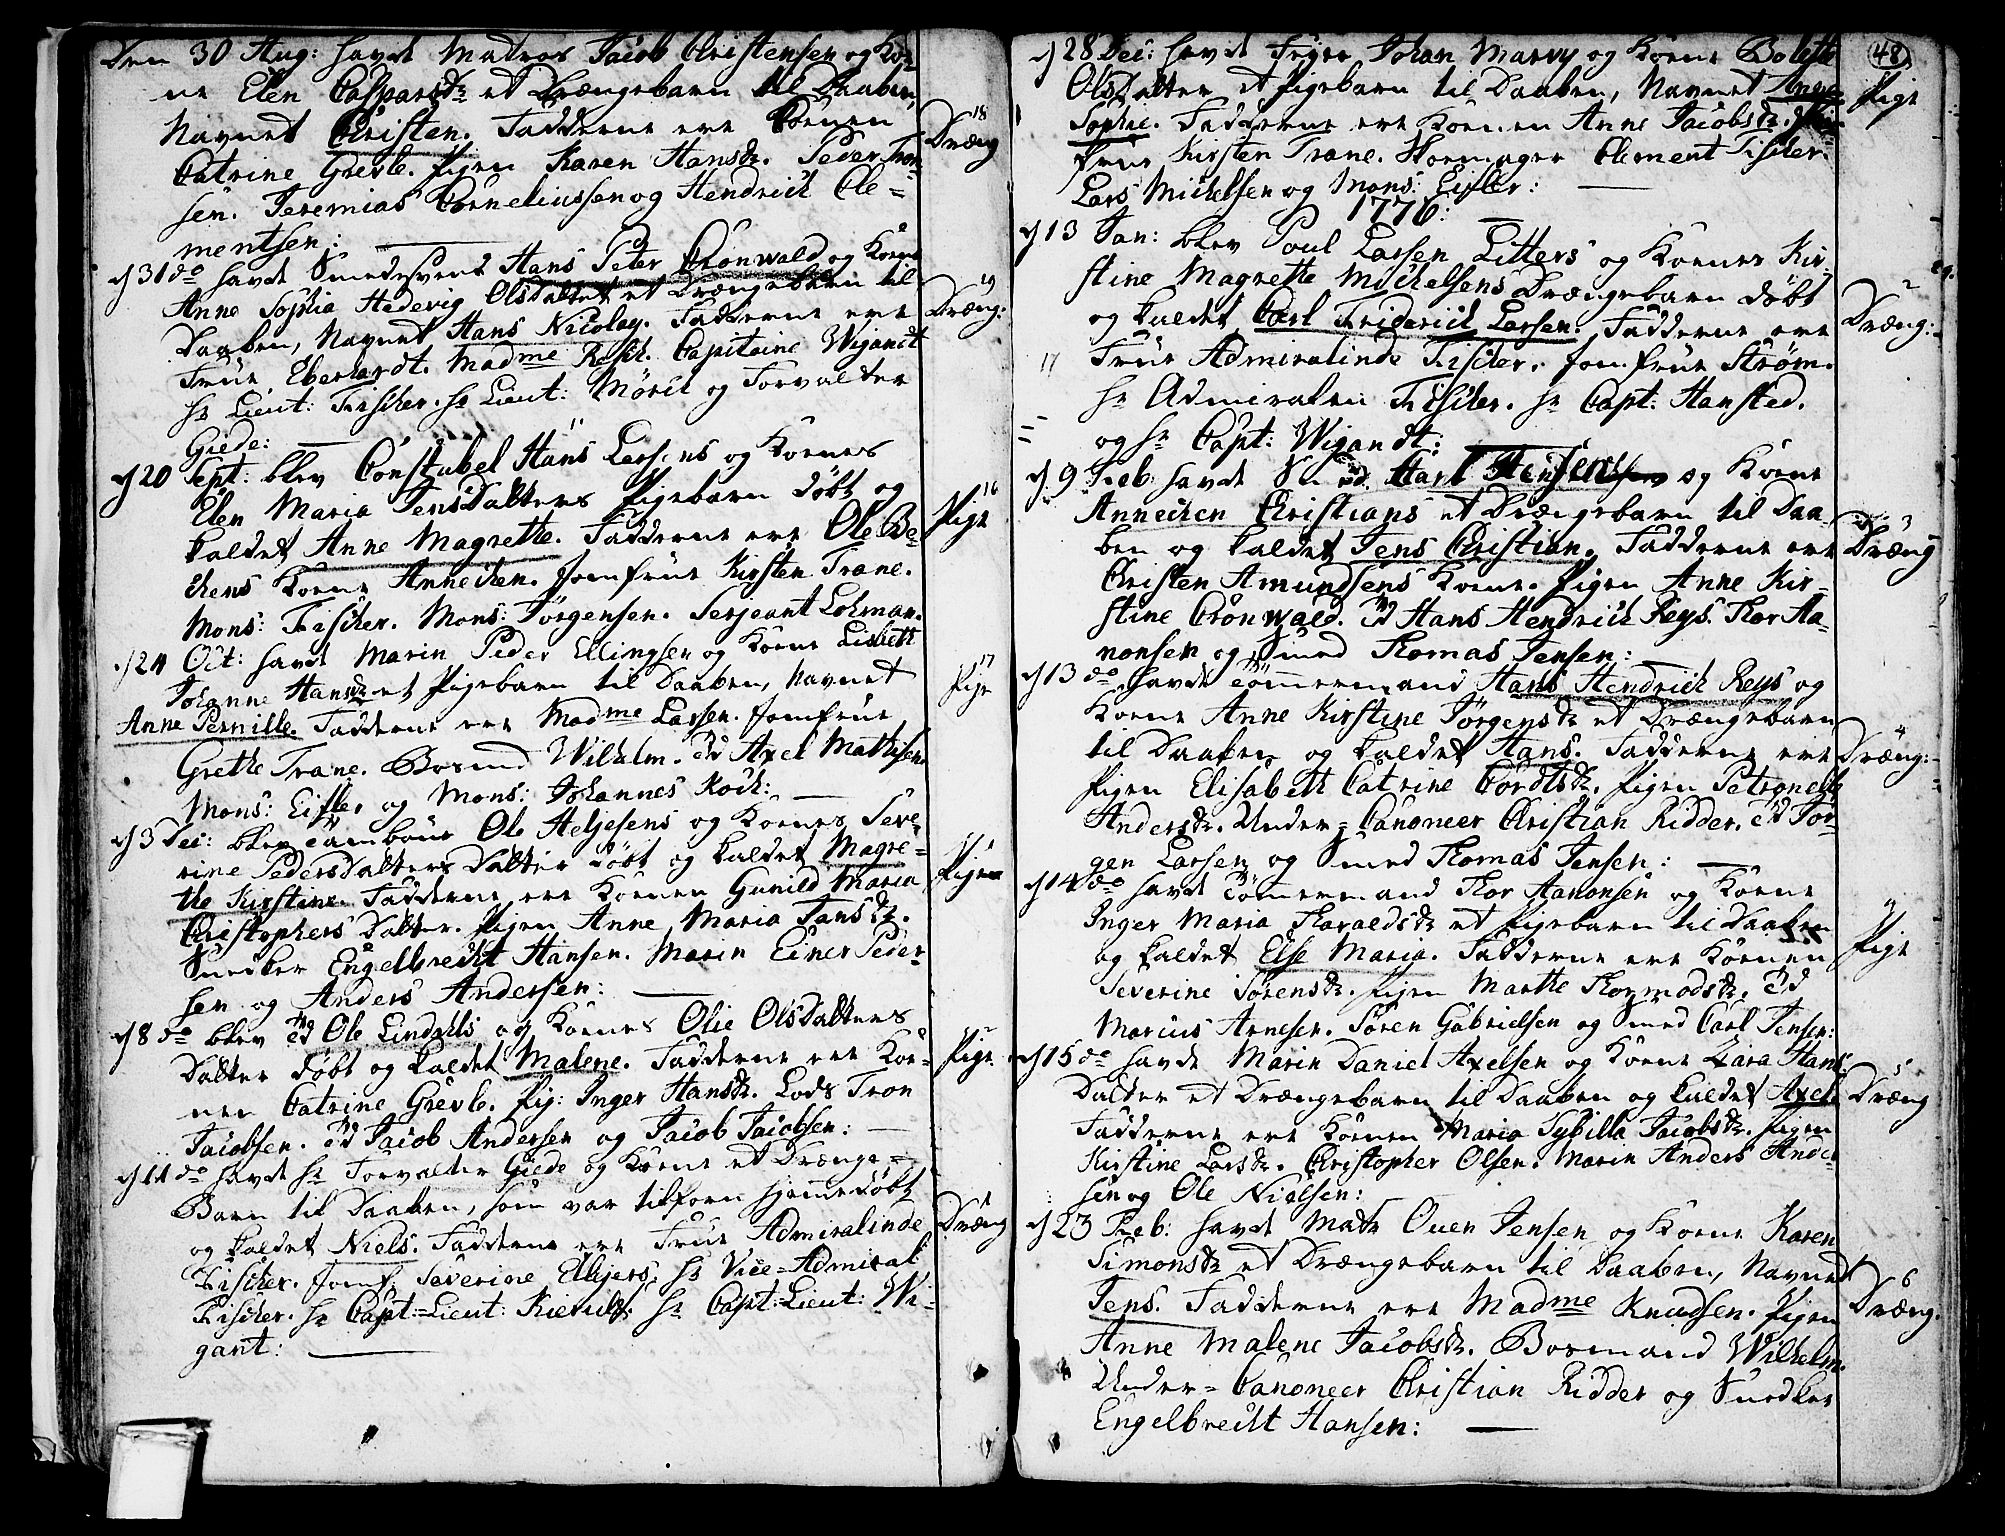 Den 30 Aug: havde Matros Jacob Christensen og Koe-
ne Elen Caspersdr et Drængebarn til Daaben,
Navnet Christen. Fadderne ere Konen
Catrine Grevle. Pigen Karen Hansdr. Peder Tron-
sen. Jeremias Corneliussen og Hendrich Cle-
mentsen:
18
Dræng
d 31 do havde Smedesvend Hans Peter Crönwald og Kone
Anne Sophia Hedevig Olsdatter et Drængebarn til
Daaben, Navnet Hans Nicolay. Fadderne ere
Frue Eberhardt. Madme Rosch. Capitaine Wigandt
hr Lieut: Fischer. hr Lieut: Mörch og Forvalter
Giede:
19
Dræng:
d 20 Sept: blev Constabel Hans Larsens og Kones
Elen Maria Jensdatters Pigebarn döbt og
kaldet Anne Magrethe. Fadderne ere Ole Be-
chens Kone Annechen. Jomfrue Kirsten Trane.
Mons: Fischer. Mons: Jörgensen. Serjeant Lohman.
16
Pige
d 24 Oct: havde Marin Peder Ellingsen og Kone Lisbeth
Johanne Hansdr et Pigebarn til Daaben, Navnet
Anne Pernille. Fadderne ere Madme Larsen. Jomfrue
Grethe Trane. Bosmd Wilhelm. Md Axel Mathisen
Mons: Eisler og Mons: Johannes Koch:
17
Pige
d 3 Dec: blev Tambour Ole Heljesens og Kones Seve-
rine Pedersdatters Datter döbt og kaldet Magre-
the Kirstine. Fadderne ere Konen Gunild Maria
Christophers Datter. Pigen Anne Maria Jansdr.
Snedker Engelbrecht Hansen. Marin Einer Peder-
sen og Anders Andersen:
Pige
d 8 do blev Md Ole Lindahls og Kones Olie Olsdatters
Datter döbt og kaldet Malene. Fadderne ere Ko-
nen Catrine Grevle. Pig: Inger Hansdr. Lods Tron
Jacobsen. Md Jacob Andersen og Jacob Jacobsen:
Pige
d 11 do havde hr Forvalter Giede og Kone et Drænge-
Barn til Daaben, som var tilforn hjemmedöbt
og kaldet Niels. Fadderne ere Frue Admiralinde
Fischer. Jomf: Severine Elbjers. hr Vice-Admiral
Fischer. hr Capt-Lieut: Kierulf. hr Capt:Lieut: Wi-
gant:
Dræng
48
d 28 Dec: havde Johan Marvy og Kone Bolette
Olsdatter et Pigebarn til Daaben, Navnet Anne
Sophie. Fadderne ere Konen Anne Jacobsdr. Jom-
frue Kirsten Trane. Skoemager Clement Fischer.
Lars Michelsen og Mons: Eisler:
Pige
1776:
d 13 Jan: blev Poul Larsen Litters og Kones Kir-
stine Magrethe Michelsens Drængebarn döbt
og kaldet Carl Friderich Larsen. Fadderne ere
Frue Admiralinde Fischer. Jomfrue Ström.
hr Admiralen Fischer. hr Capt: Hansted.
og hr Capt: Wigandt:
2
Dræng:
d 9 Feb: havde Smed. Carl Jensen og Kone
Annechen Christians et Drængebarn til Daa
ben og kaldet Jens Christian. Fadderne ere
Christen Amundsens Kone. Pigen Anne Kir-
stine Crönwald. Md Hans Hendrich Reys. Thor Aa-
nonsen og Smed Thomas Jensen:
3
Dræng
d 13 do havde Tömmermand Hans Hendrich Reys og
Kone Anne Kirstine Jörgensdr et Drængebarn
til Daaben og kaldet Hans. Fadderne ere
Pigen Elisabeth Catrine Cordtsdr. Pigen Petronelle
Andersdr. Under-Canoneer Christian Ridder. Md Jör-
gen Larsen og Smed Thomas Jensen:
4
Dræng:
d 14 do havde Tömmermand Thor Aanonsen og Kone
Inger Maria Haraldsdr et Pigebarn til Daaben
og kaldet Else Maria. Fadderne ere Konen
Severine Sörensdr. Pigen Marthe Thormodsdr. Md
Marcus Arnesen. Sören Gabrielsen og Smed Carl Jensen:
Pige
d 15 do havde Marin Daniel Axelsen og Kone Zara Hans
Datter et Drængebarn til Daaben og kaldet Axel.
Fadderne ere Konen Maria Sybilla Jacobsdr. Pigen
Kirstine Larsdr. Christopher Olsen. Marin Anders Ander
sen og Ole Nielsen:
5
Dræng
d 23 Feb: havde Matr Ouen Jensen og Kone Karen
Simonsdr et Drængebarn til Daaben, Navnet
Jens. Fadderne ere Madme Knudsen. Pigen
Anne Malene Jacobsdr. Bosmand Wilhelm.
Under-Canoneer Christian Ridder og Snedker
Engelbrecht Hansen:
6
Dræng.